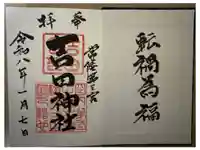 転禍為福
奉拝
常陸第三宮
吉田神社
令和八年一月七日